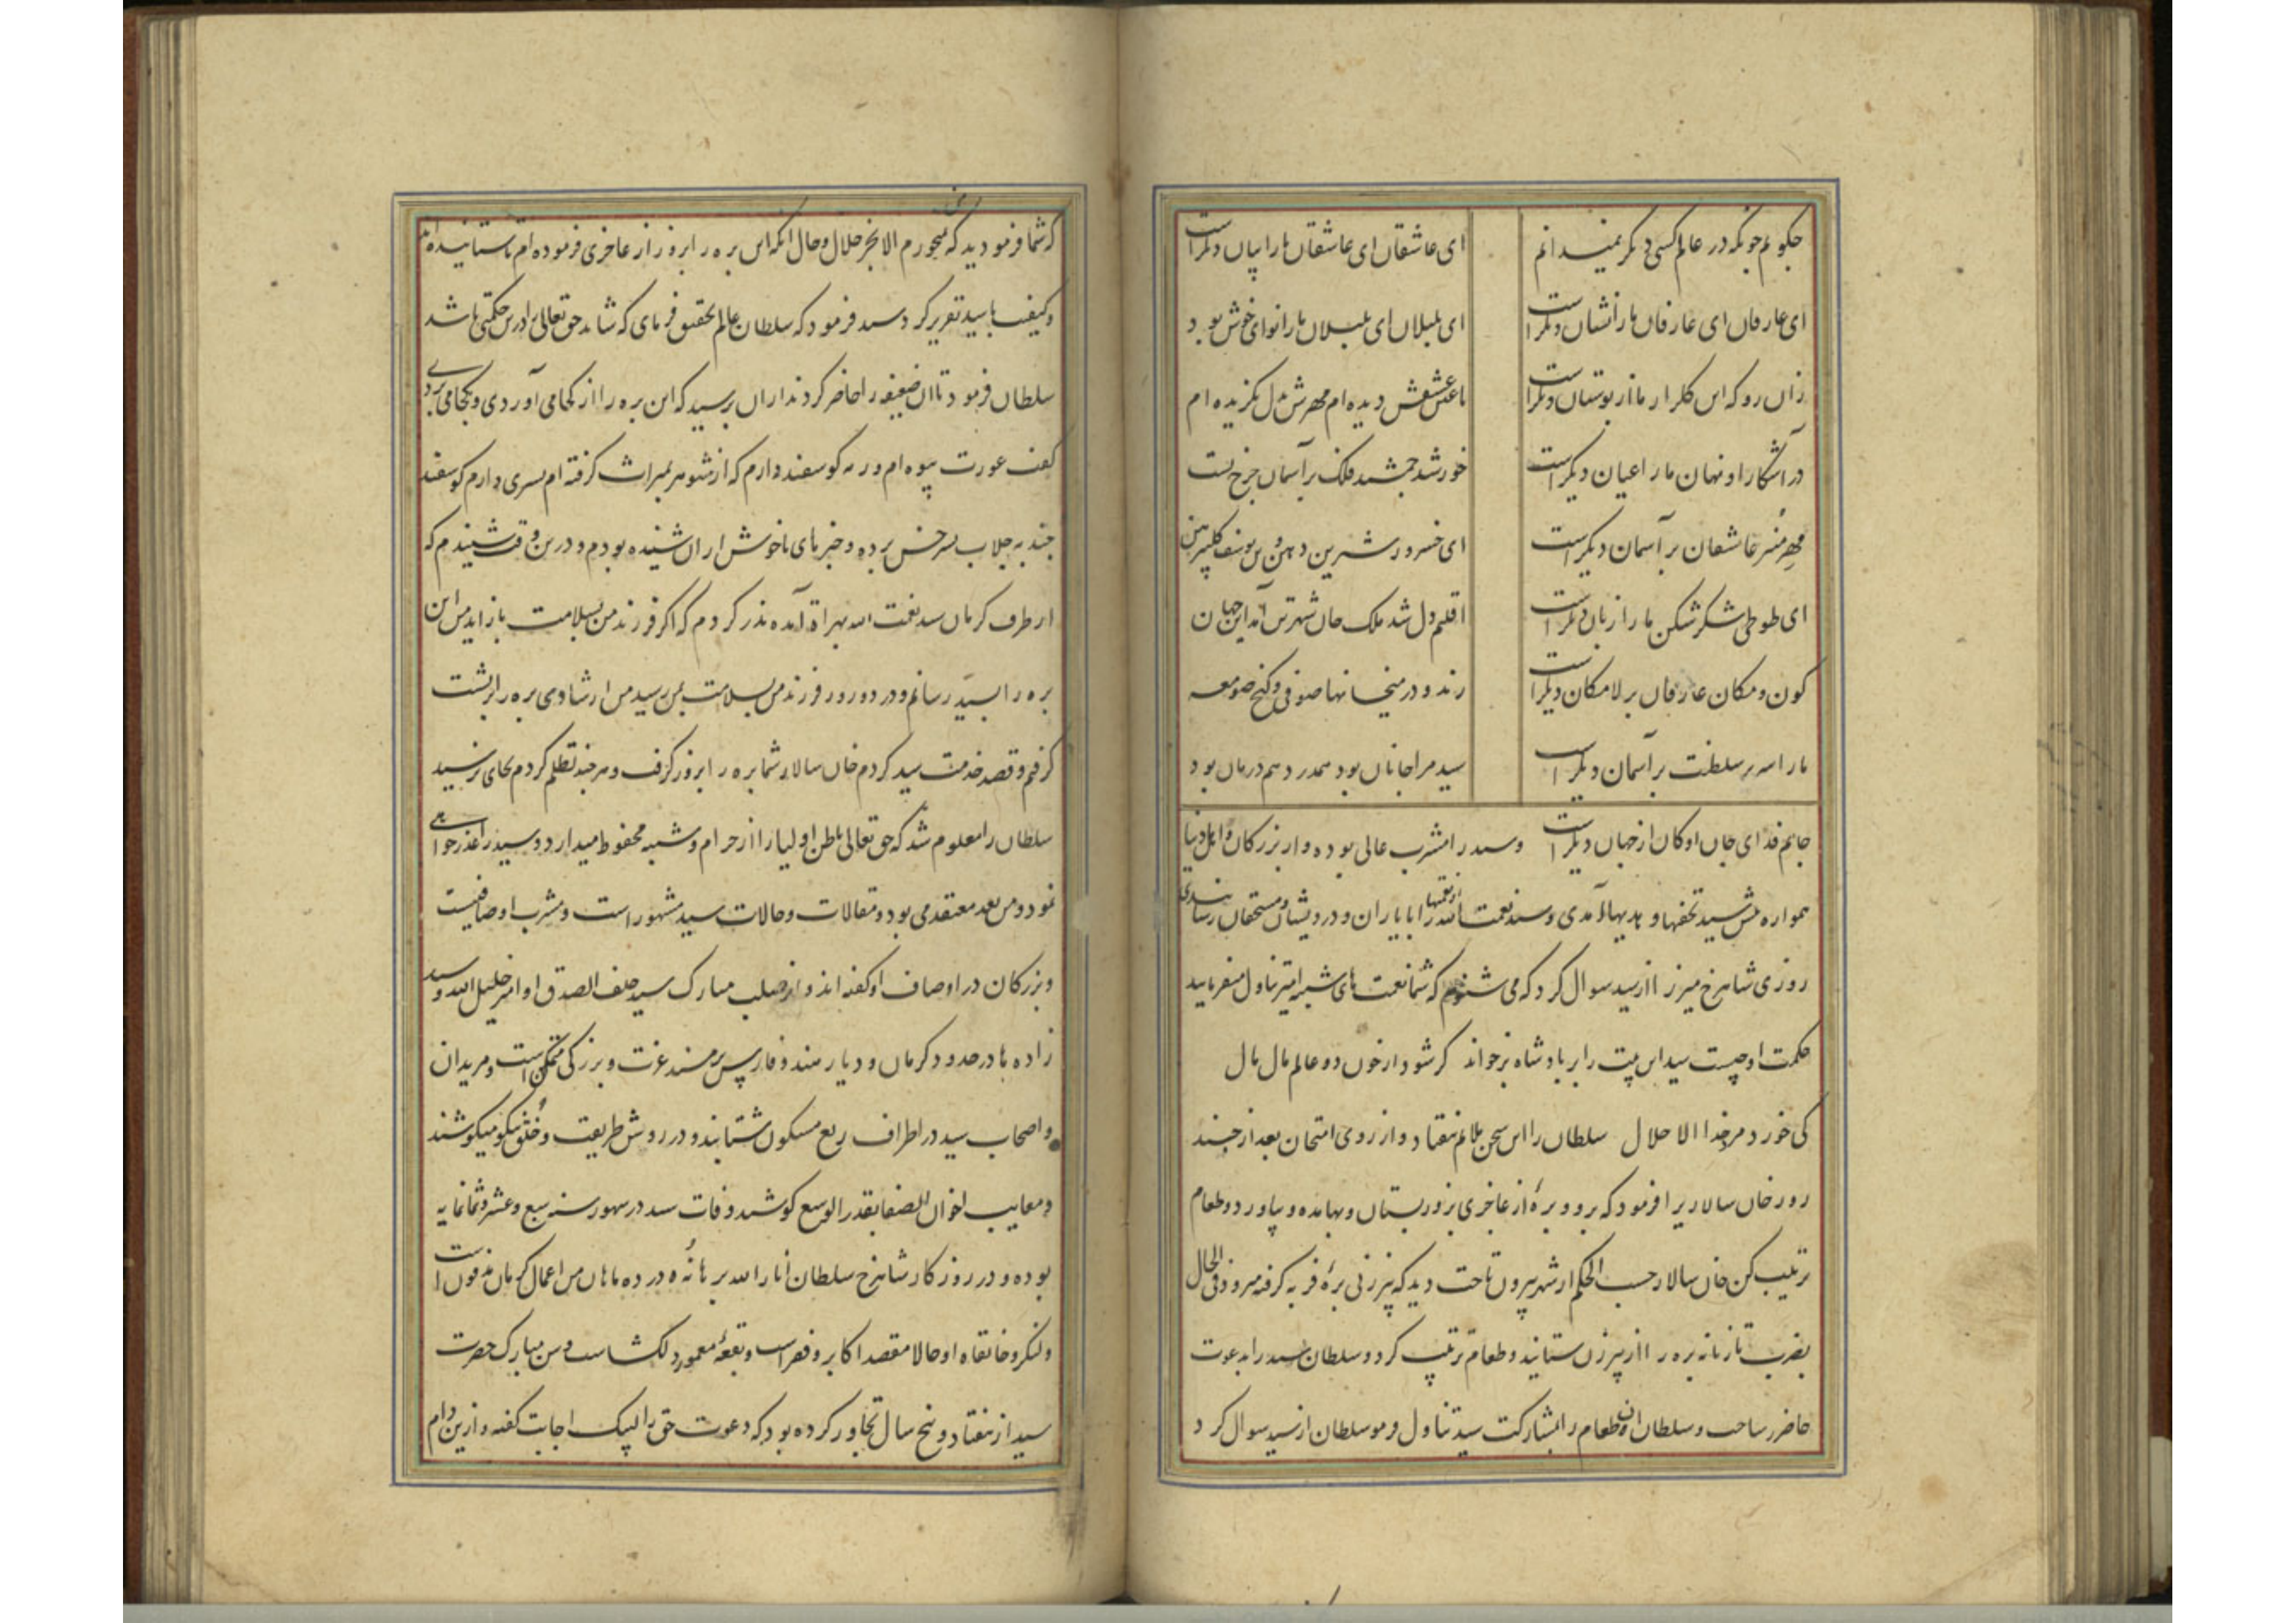 چکویم چونکه در عالم کسی دیکر نمیدانم
ای عاشقان ای عاشقان ما را بیان دیکر است
ای عارفان ای عارفان ما را نشان دیکر است
ای بلبلان ای بلبلان ما را نوای خوش بود
زان رو که این کلزار ما از بوستان دیکر است
تا عین عشقش دیده ام مهرش بدل بکزیده ام
در آشکارا و نهان ما را عیان دیکر است
خورشید جمشید فلک بر آسمان چرخ است
مهر منیر عاشقان بر آسمان دیکر است
ای خسرو شیرین دهن وی یوسف کل پیرهن
ای طوطی شکر شکن ما را زبان دیکر است
اقلیم دل شد ملک جان شهر تن آمد این جهان
کون و مکان عارفان بر لامکان دیکر است
رند و در میخانها صوفی و کنج صومعه
ما را سریر سلطنت بر آسمان دیکر است
سید مرا جانان بود هم درد و هم درمان بود
جانم فدای جان او کان از جهان دیکر است وسید را مشرب عالی بوده و از بزرکان و اهل دنیا
همواره پیش سید تحفها و هدیها آمدی و سید نعمت الله آن نعمتها را با یاران و درویشان و مستحقان رسانیدی
روزی شاهرخ میرزا از سید سوال کرد که می شنوم که شما نعمت های شبهه آمیز تناول میفرمایید
حکمت او چیست سید این بیت را بر پادشاه برخواند کر شود از خون دو عالم مال مال
کی خورد مرد خدا الا حلال سلطان را این سخن ملایم نیفتاد و از روی امتحان بعد از چند
روز خان سالار را فرمود که برو و برۀ از عاجزی بزور بستان و بها مده و بیاور و طعام
ترتیب کن خان سالار حسب الحکم از شهر بیرون تاخت دید که پیر زنی برۀ فربه کرفته میرود فی الحال
بضرب تازیانه بره را از پیر زن ستانید و طعام ترتیب کرد و سلطان سید را بدعوت
حاضر ساخت و سلطان آن طعام را بمشارکت سید تناول نمود سلطان از سید سوال کرد
که شما فرمودید که نمیخورم الا بجز حلال و حال آنکه این بره را بزور از عاجزی فرموده ام تا ستانیده اند
و کیفیت با سید تقریر کرد سید فرمود که سلطان عالم تحقیق فرمای که شاید حق تعالی را درین حکمتی باشد
سلطان فرمود تا آن ضعیفه را حاضر کردند از آن پرسید که این بره را از کجا می آوردی و بکجا می بردی
کفت عورت بیوه ام و رمه کوسفند دارم که از شوهر بمیراث کرفته ام پسری دارم کوسفند
چند به جلاب سرخس برده و خبرهای ناخوش از آن شنیده بودم و درین وقت شنیدم که
از طرف کرمان سید نعمت الله بهراة آمده نذر کردم که اکر فرزند من بسلامت باز آید من این
بره را بسید رسانم و در دو روز فرزند من بسلامت بمن رسید من از شادی بره را بر پشت
کرفتم و قصد خدمت سید کردم خان سالار شما بره را بزور کرفت و هر چند تظلم کردم بجای نرسید
سلطان را معلوم شد که حق تعالی باطن اولیا را از حرام و شبهه محفوظ میدارد و سید را عذر خواهی
نمود و من بعد معتقد می بود و مقالات و حالات سید مشهور است و مشرب او صافیست
و بزرکان در اوصاف او کفته اند و از صلب مبارک سید خلف الصدق او امیر خلیل الله و سید
زاده ها در حدود کرمان و دیار هند و فارس بر مسند عزت و بزرکی متمکن است و مریدان
و اصحاب سید در اطراف ربع مسکون شتابند و در روش طریقت و خلق نیکو میکوشند
و معایب اخوان الصفا بقدر الوسع کوشید وفات سید در شهور سنه سبع و عشر و ثمانمایه
بوده و در روزکار شاهرخ سلطان انار الله برهانه در ده ماهان من اعمال کرمان مدفون است
و لنکر و خانقاه او حالا مقصد اکابر و فقراست و بقعۀ معمور دلکشاست و سن مبارک حضرت
سید از هفتاد و پنج سال تجاوز کرده بود که دعوت حق را لبیک اجابت کفته و ازین دام